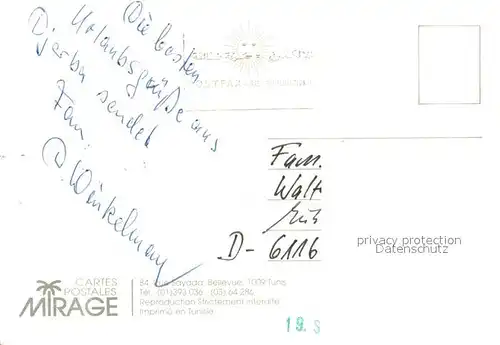 Die besten
Urlaubsgrüße aus
Djerba sendet
Fam.
D. Winkelmann
Fam.
Walt
D-6116
privacy protection
DELCAMPE
CARTES
POSTALES
MIRAGE
84, Rue Sayada Bellevue, 1009 Tunis
Tél. (01) 393 036 - (03) 64 286
Reproduction Strictement interdite
Imprimé en Tunisie
19. S